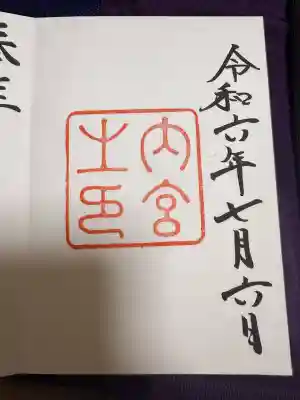 令和六年七月六日
内宮
之印